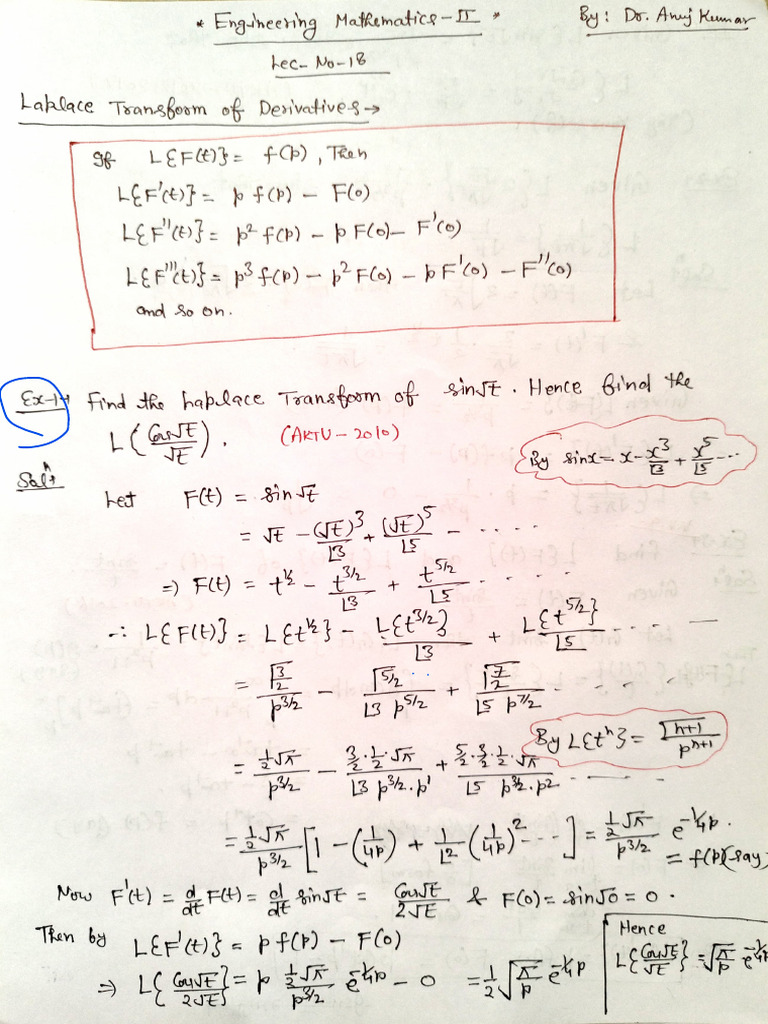 * Engineering Mathematics-II *
By: Dr. Anuj Kumar
Lec-No-18
Laplace Transform of Derivatives→
If L{F(t)} = f(p), Then
L{F'(t)} = p f(p) - F(0)
L{F''(t)} = p² f(p) - p F(0) - F'(0)
L{F'''(t)} = p³ f(p) - p² F(0) - p F'(0) - F''(0)
and so on.
Ex-1→ Find the Laplace Transform of sin√t. Hence find the
L(Cos√t/√t). (AKTU-2010)
By sinx = x - x³/⌊3 + x⁵/⌊5 ---
Solⁿ→
Let F(t) = sin√t
= √t - (√t)³/⌊3 + (√t)⁵/⌊5 - ....
⇒ F(t) = t^½ - t^3/2/⌊3 + t^5/2/⌊5 - ....
∴ L{F(t)} = L{t^½} - L{t^3/2}/⌊3 + L{t^5/2}/⌊5 ....
= Γ3/2/p^3/2 - Γ5/2/⌊3 p^5/2 + Γ7/2/⌊5 p^7/2 - ....
By L{tⁿ} = Γn+1/p^n+1
= ½√π/p^3/2 - 3/2·1/2·√π/⌊3 p^3/2·p¹ + 5/2·3/2·1/2·√π/⌊5 p^3/2·p² ....
= ½√π/p^3/2 [1 - (1/4p) + 1/⌊2 (1/4p)² ---] = ½√π/p^3/2 e^-1/4p.
= f(p)(say)
Now F'(t) = d/dt F(t) = d/dt sin√t = Cos√t/2√t & F(0) = sin√0 = 0.
Then by L{F'(t)} = p f(p) - F(0)
⇒ L{Cos√t/2√t} = p ½√π/p^3/2 e^-1/4p - 0 = ½√π/p e^-1/4p
Hence
L{Cos√t/√t} = √π/p e^-1/4p